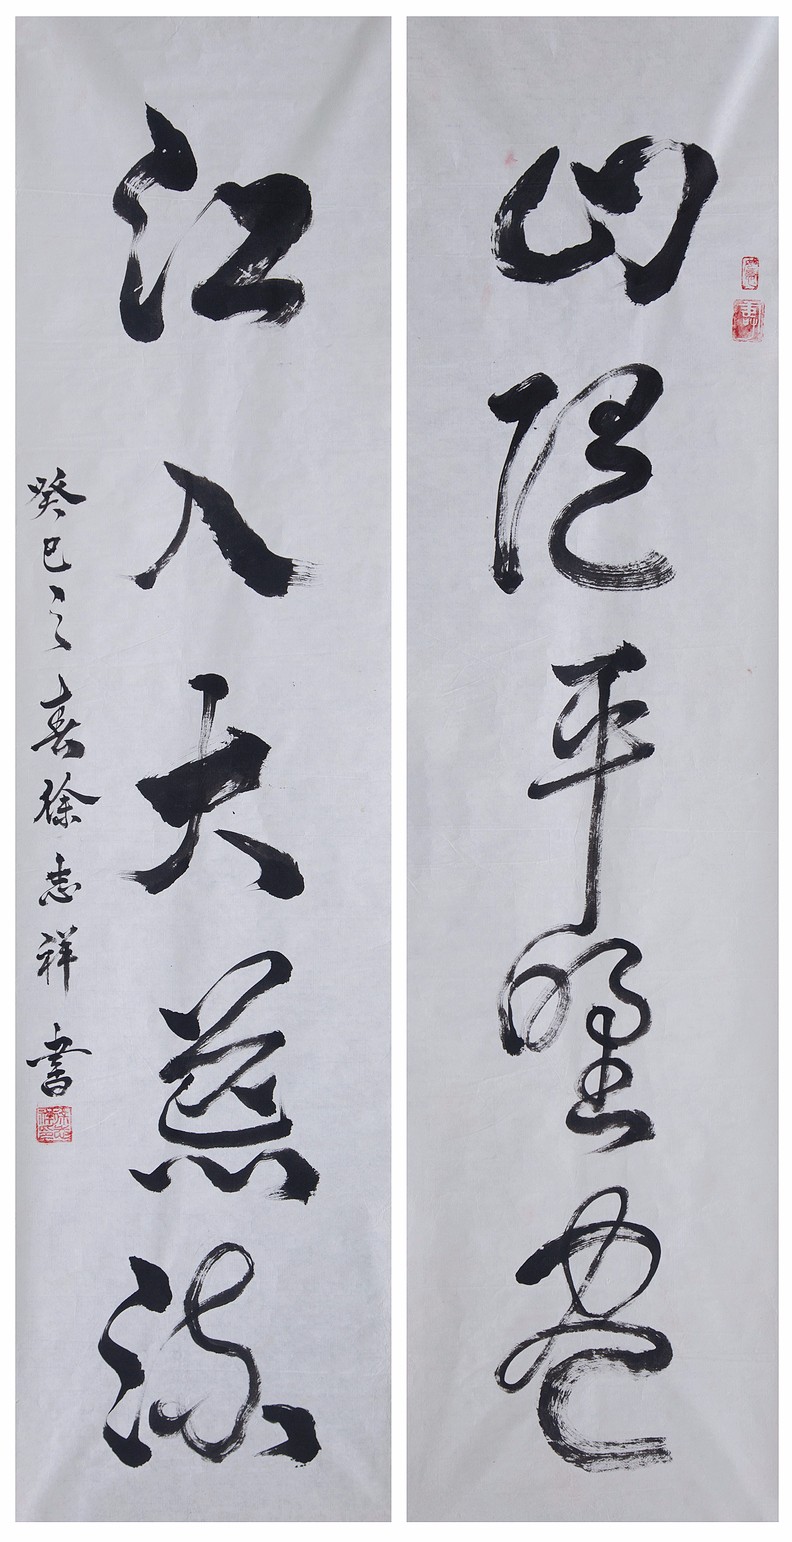 山随平野尽
江入大荒流
癸巳之春徐志祥書